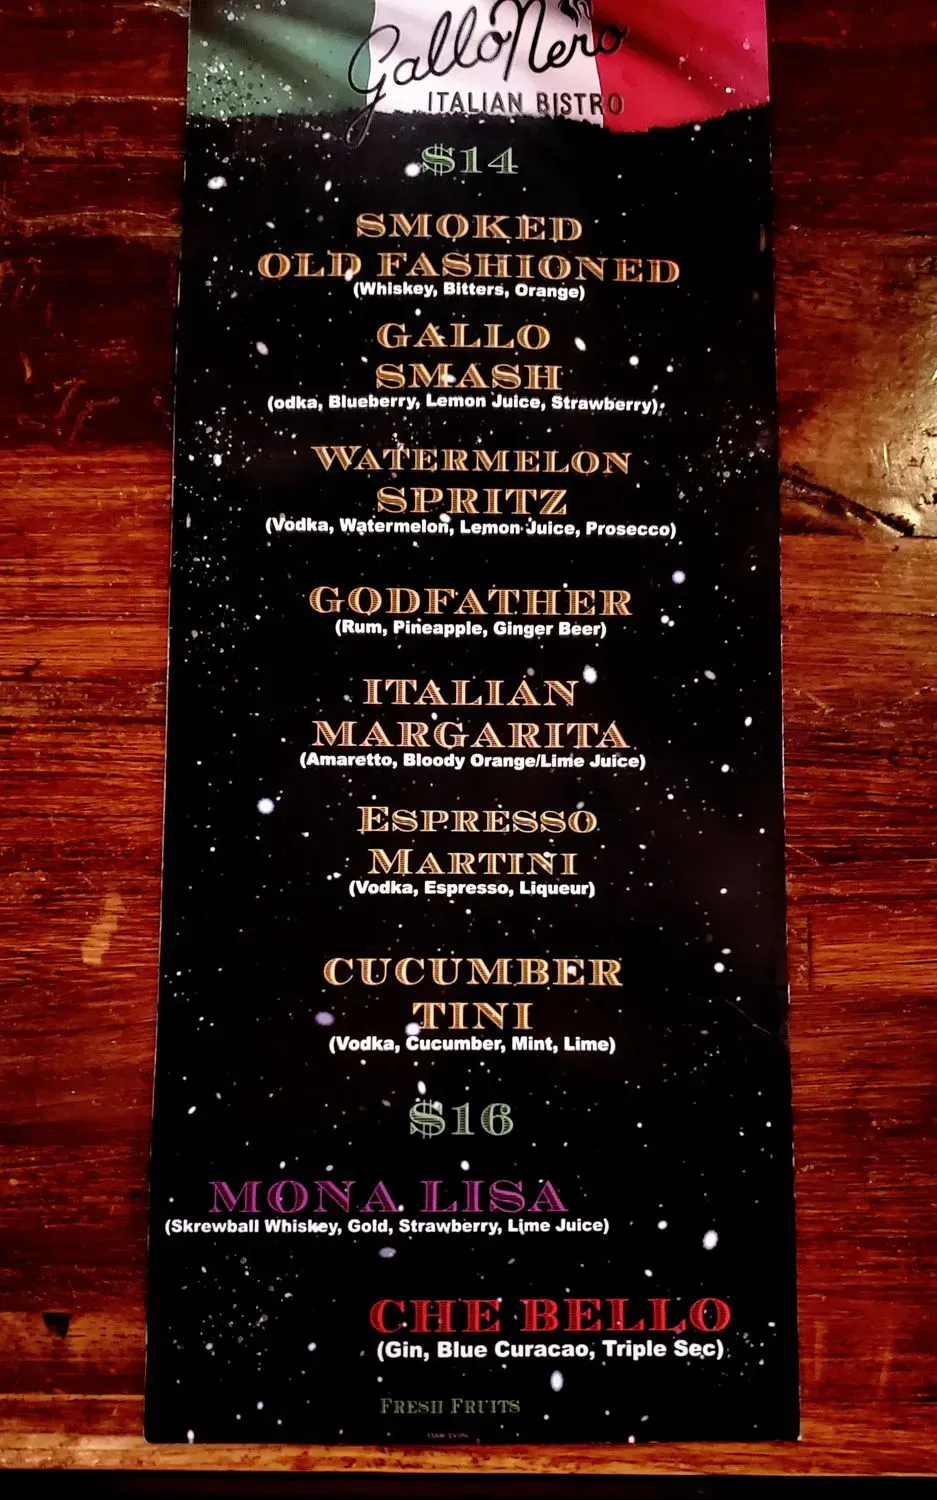 Gallo Nero
ITALIAN BISTRO
$14
SMOKED
OLD FASHIONED
(Whiskey, Bitters, Orange)
GALLO
SMASH
(odka, Blueberry, Lemon Juice, Strawberry)
WATERMELON
SPRITZ
(Vodka, Watermelon, Lemon Juice, Prosecco)
GODFATHER
(Rum, Pineapple, Ginger Beer)
ITALIAN
MARGARITA
(Amaretto, Bloody Orange/Lime Juice)
ESPRESSO
MARTINI
(Vodka, Espresso, Liqueur)
CUCUMBER
TINI
(Vodka, Cucumber, Mint, Lime)
$16
MONA LISA
(Skrewball Whiskey, Gold, Strawberry, Lime Juice)
CHE BELLO
(Gin, Blue Curacao, Triple Sec)
FRESH FRUITS